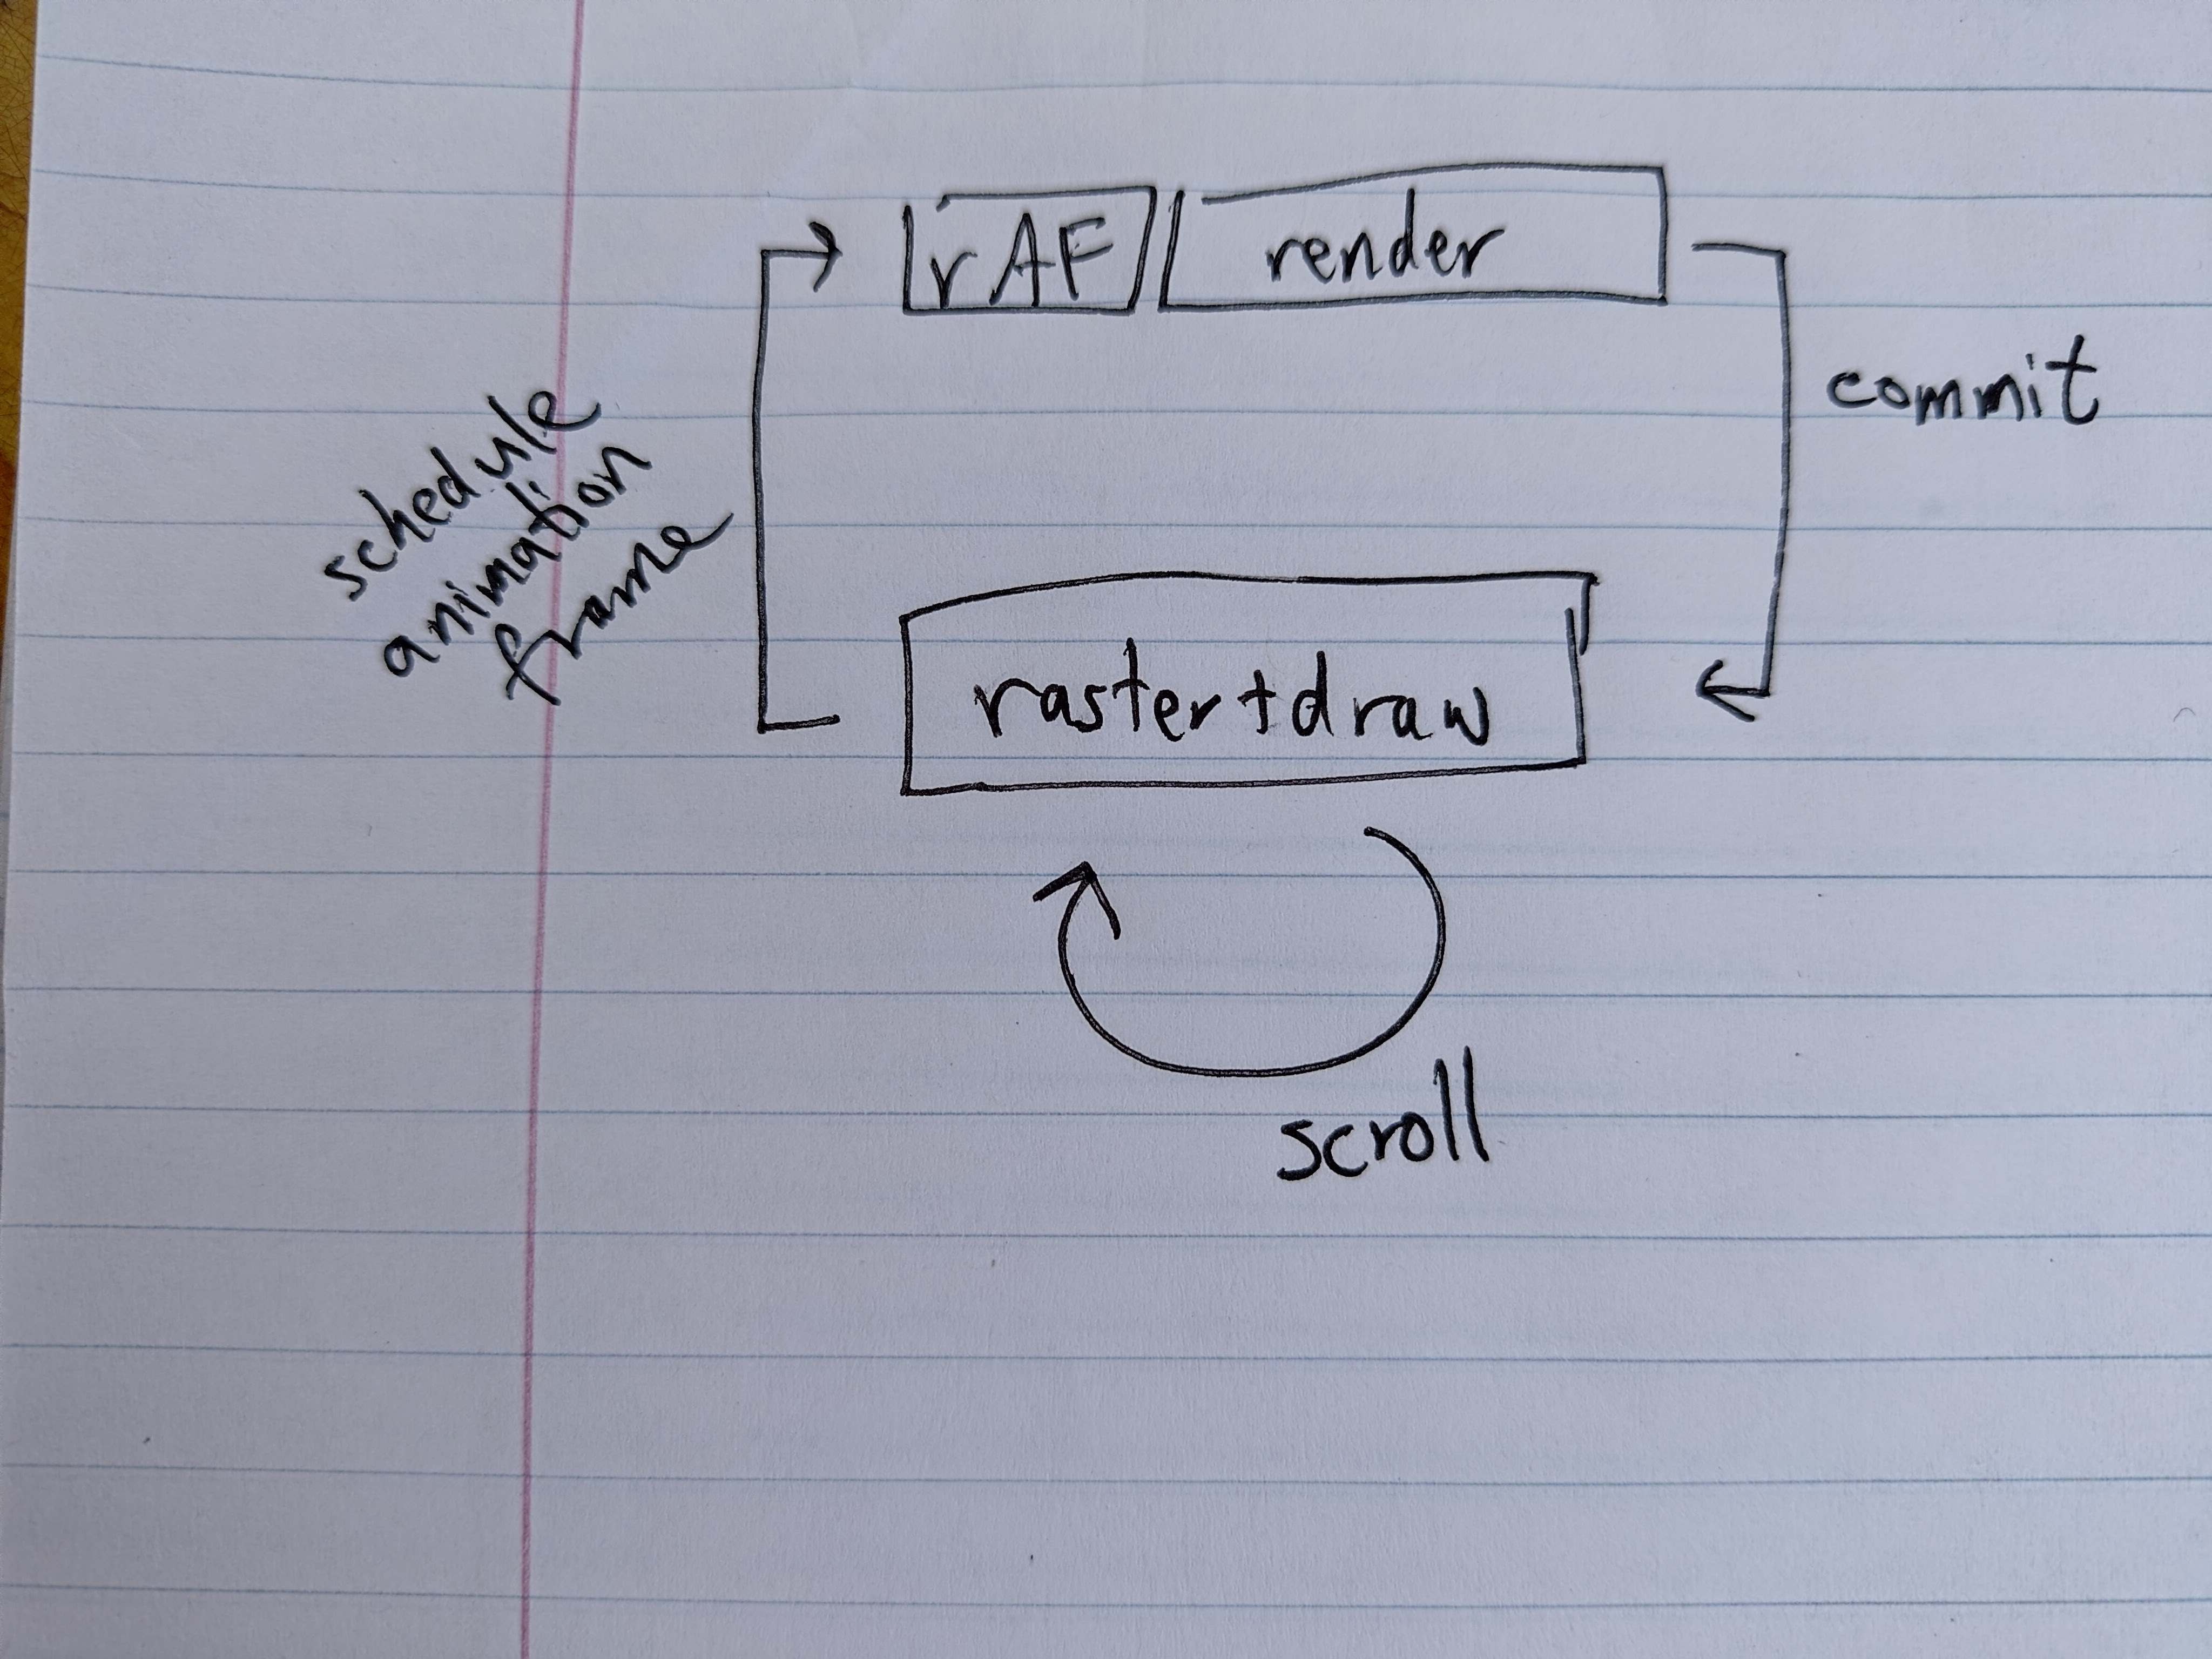 rAF
render
commit
schedule
animation
frame
raster+draw
scroll